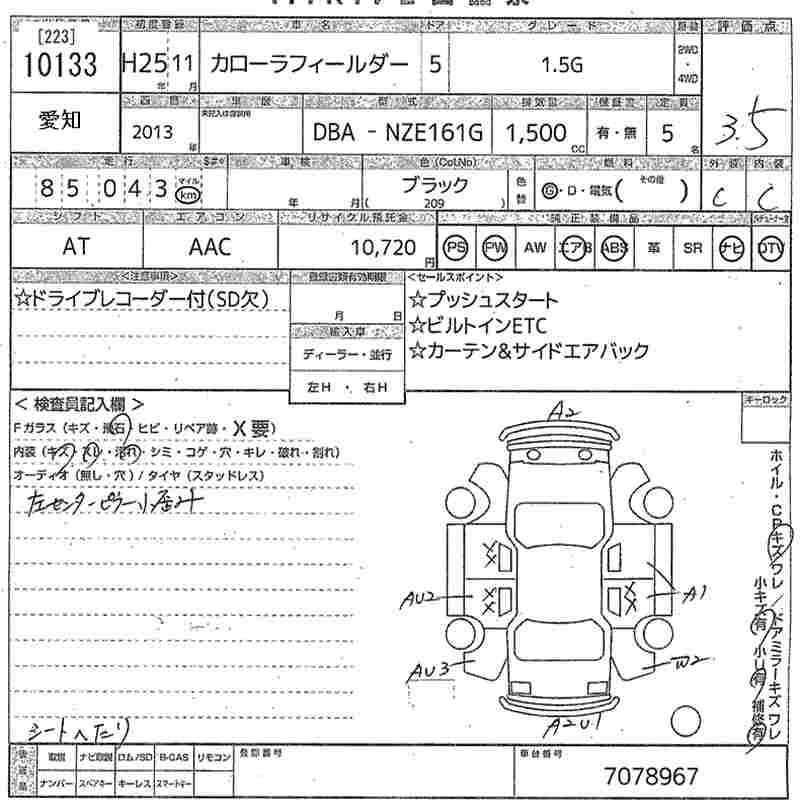 [223]
10133
初度登録 車名 ドア グレード 駆動 評価点
H25年 11月 カローラフィールダー 5 1.5G 2WD・4WD
3.5
愛知
型式 排気量 保証書 定員
2013年 未記入は登録用 DBA - NZE161G 1,500cc 有・無 5名
走行 車検 色(ColNo) 燃料 外装 内装
85043 マイル km 年 月 ブラック (209) 色替 G・D・電気( その他 ) C C
シフト エアコン リサイクル預託金 純正装備品
AT AAC 10,720円 PS PW AW エアB ABS 革 SR ナビ DTV
<注意事項> 登録書類有効期限 <セールスポイント>
☆ドライブレコーダー付(SD欠) 月 日 ☆プッシュスタート
輸入車 ☆ビルトインETC
ディーラー・並行 ☆カーテン&サイドエアバック
左H ・ 右H
< 検査員記入欄 > キーロック
Fガラス(キズ・飛石・ヒビ・リペア跡・X要)
内装(キズ・スレ・汚れ・シミ・コゲ・穴・キレ・破れ・割れ)
オーディオ(無し・穴)/タイヤ(スタッドレス)
左センターピラー小凹み
A2
AU2
A1
AU3
W2
A2U1
ホイル・CPキズワレ/ドアミラーキズワレ
小キズ有 小U有 補修有
シートへたり
取説 ナビ取説 ロム/SD B-CAS リモコン 登録番号 車台番号
ナンバー スペアキー キーレス スマートキー 7078967